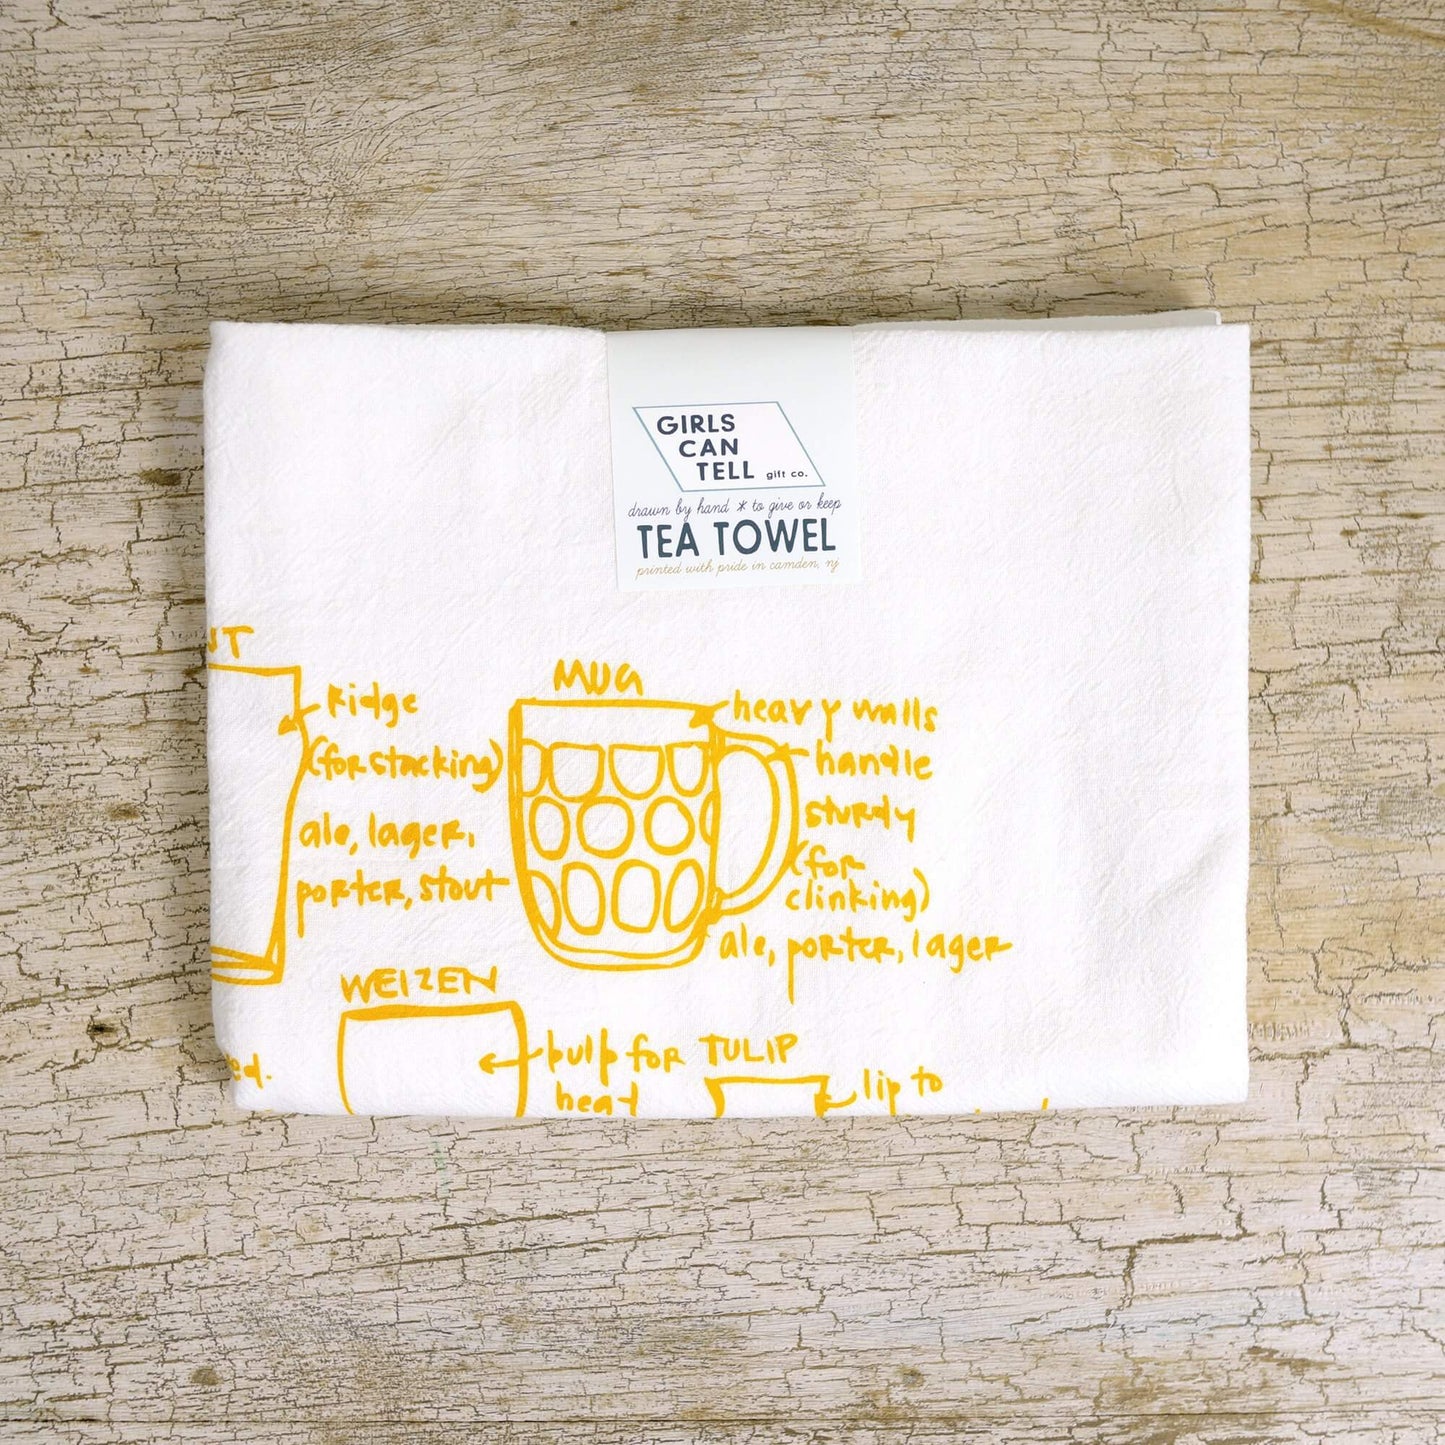 GIRLS
CAN
TELL gift co.
drawn by hand * to give or keep
TEA TOWEL
printed with pride in camden, nj
MUG
Ridge
(for stacking)
ale, lager,
porter, stout
heavy walls
handle
sturdy
(for
clinking)
ale, porter, lager
WEIZEN
bulb for
heat
TULIP
lip to